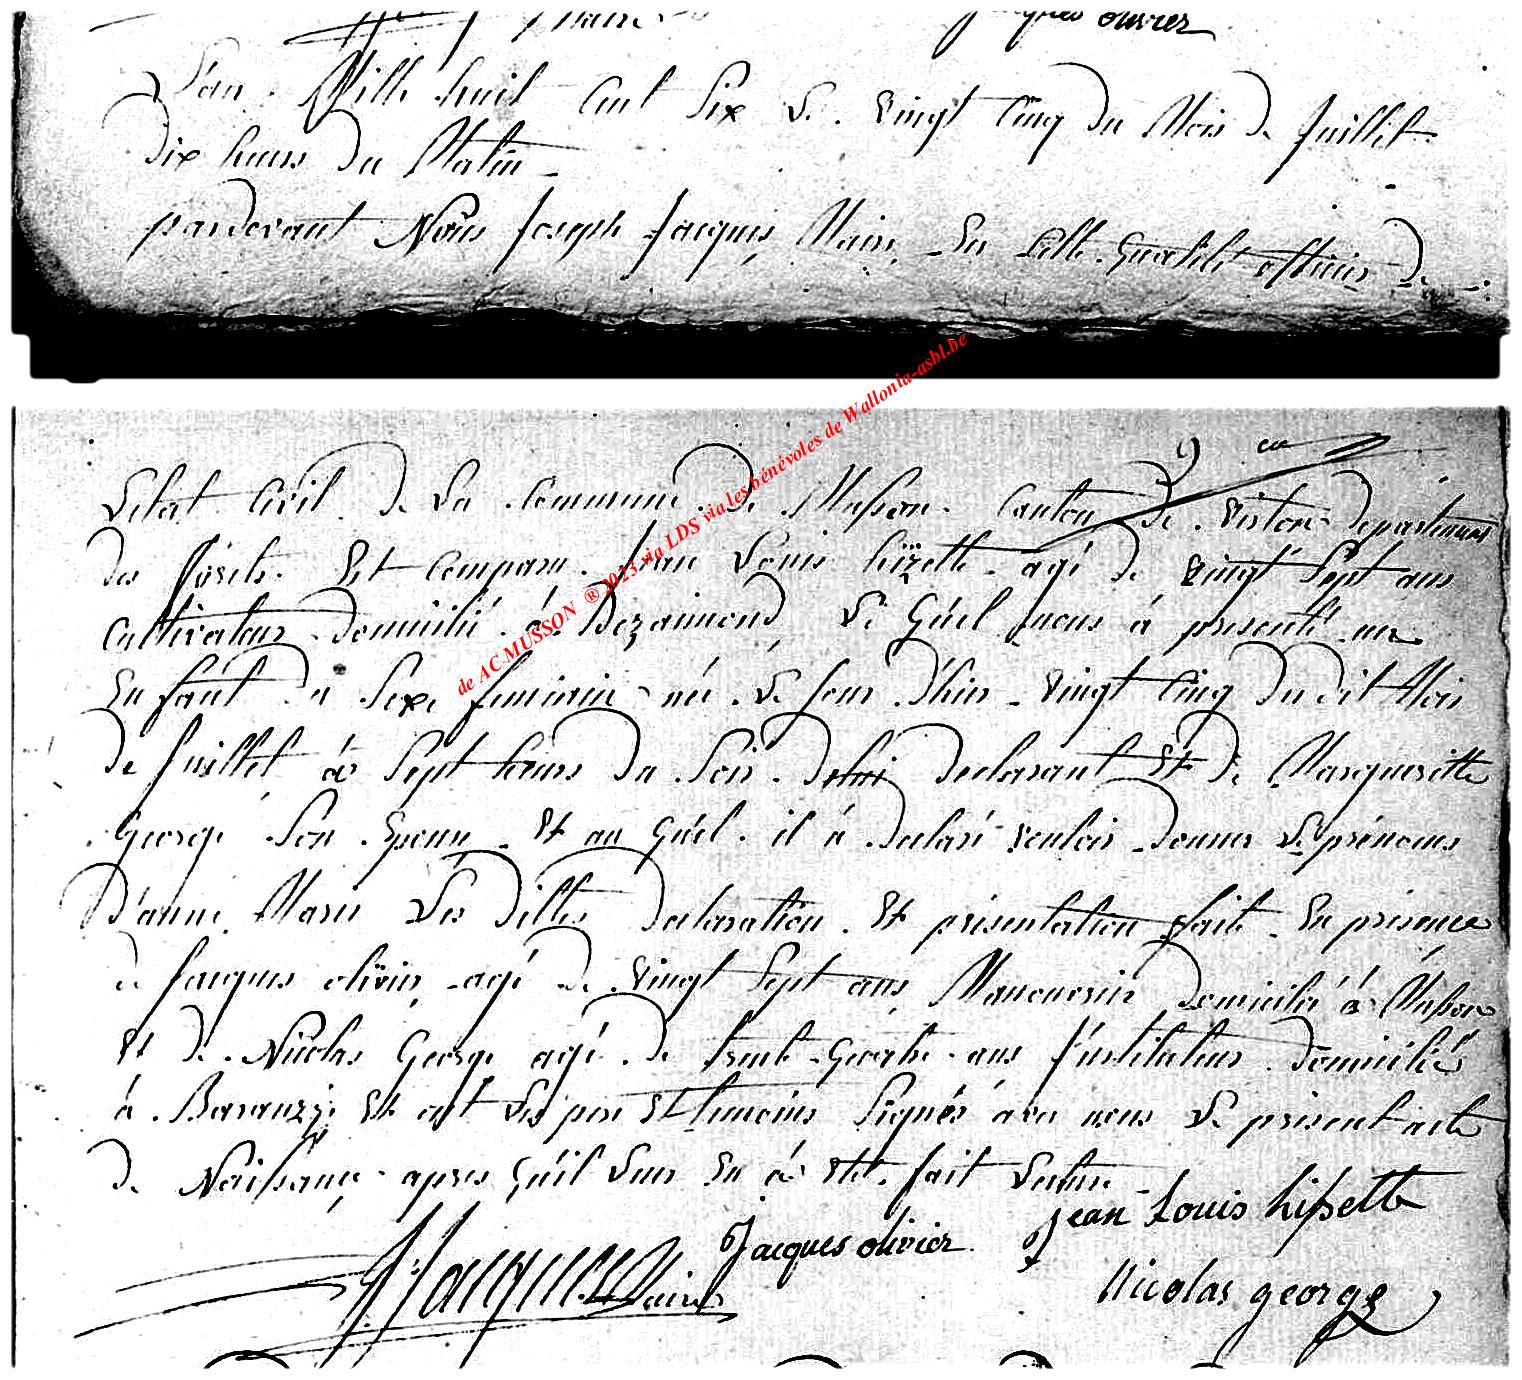 Maire
Jacques olivier
L'an Mille huit Cent Six Le vingt Cinq du Mois de Juillet
dix heures du Matin
pardevant Nous Joseph Jacques Maire En Cette Qualité officier de
9
L'etat Civil de La Commune de Musson Canton de virton departement
des forêts Est Comparu Jean Louis agé de vingt Sept ans
Cultivateur domicilié á Bezaimond Le Quel nous á presenté un
Enfant du Sexe feminin né Le Jour d'hier vingt Cinq du dit Mois
de Juillet á Sept heures du Soir de lui declarant Et de Margueritte
George Son Epouse Et au Quel il á declaré vouloir donner Les prénoms
D'anne Marie Les dittes declaration Et présentation fait En présence
de Jacques olivier agé de vingt Sept ans Manouvrié domicilié á Musson
Et de Nicolas George agé de trente Quatre ans Jnstituteur domicilié
á Baranzÿ Et ont Les pere Et temoins Signés avec nous Le présent acte
de Naissance apres Qu'il Leur En á Eté fait Lecture
Jean Louis Lissette
Jacques olivier
Jacques Maire
Nicolas george
de AC MUSSON ® 2023 via LDS via les bénévoles de Wallonia-asbl.be